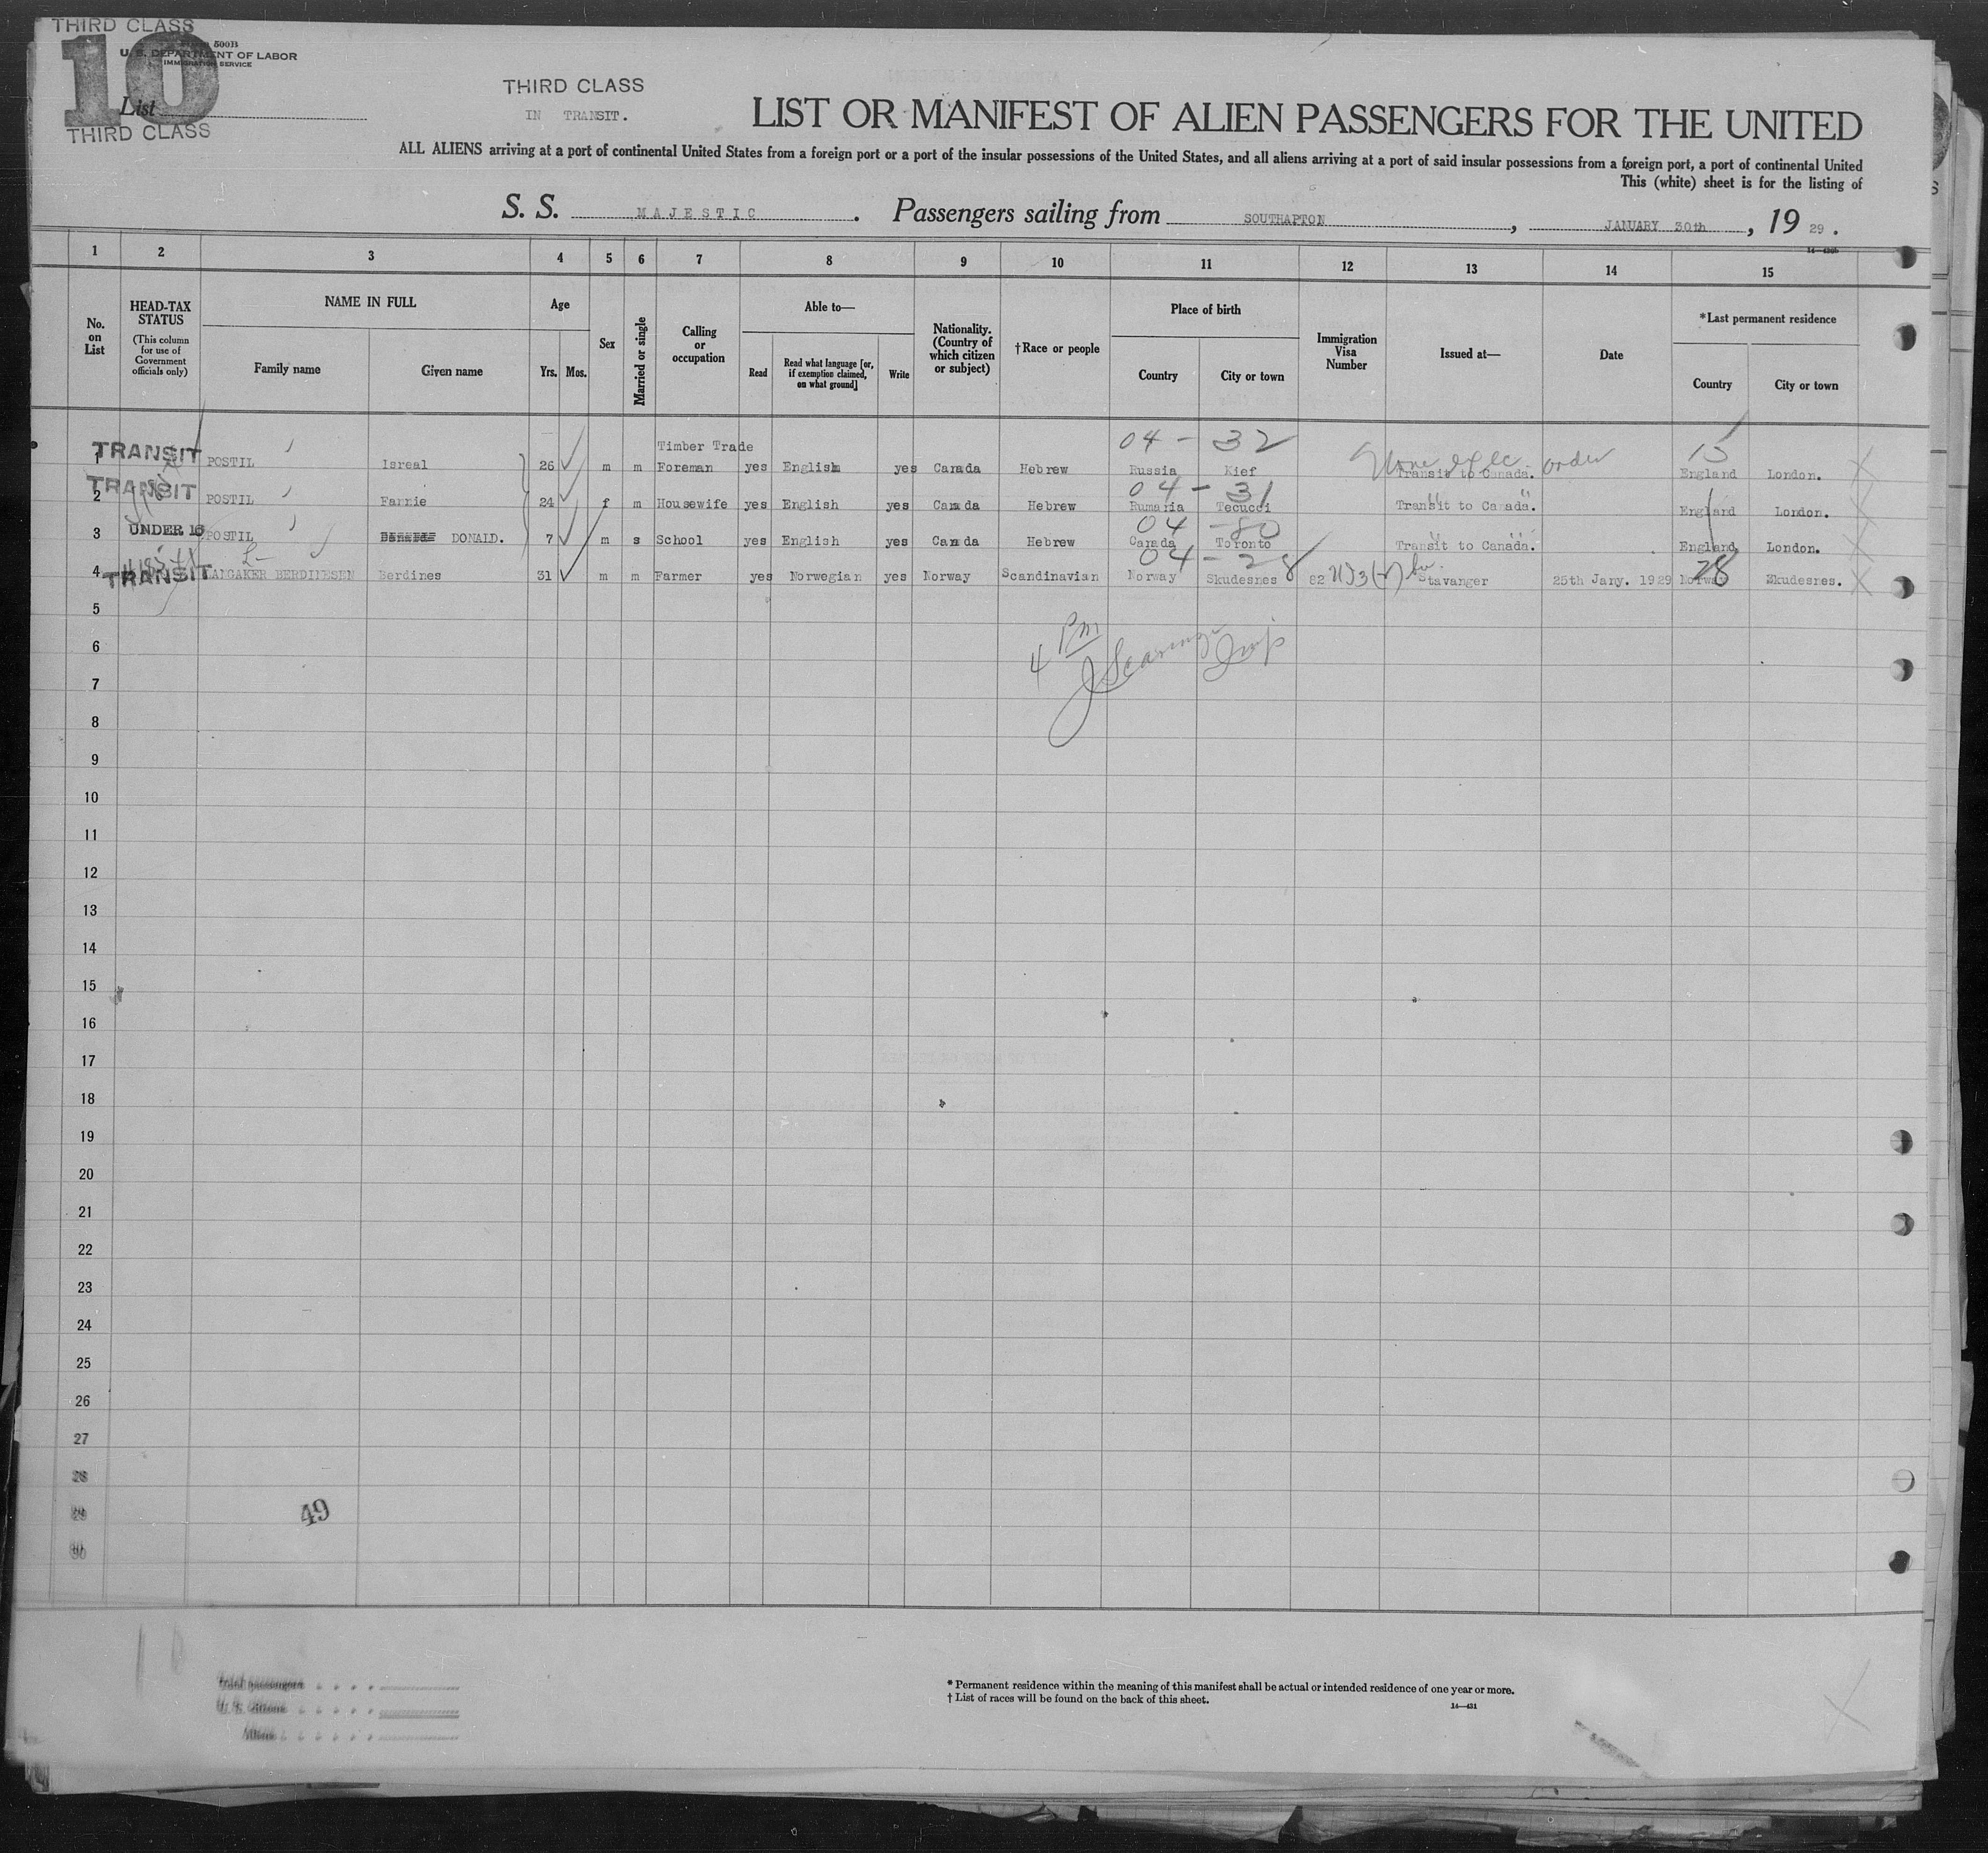 THIRD CLASS
10
500B
U. S. DEPARTMENT OF LABOR
IMMIGRATION SERVICE
List
THIRD CLASS
THIRD CLASS
IN TRANSIT.
LIST OR MANIFEST OF ALIEN PASSENGERS FOR THE UNITED
ALL ALIENS arriving at a port of continental United States from a foreign port or a port of the insular possessions of the United States, and all aliens arriving at a port of said insular possessions from a foreign port, a port of continental United
This (white) sheet is for the listing of
S. S. MAJESTIC. Passengers sailing from SOUTHAPTON, JANUARY 30th, 19 29.
1 2 3 4 5 6 7 8 9 10 11 12 13 14 15
No. on List
HEAD-TAX STATUS
(This column for use of Government officials only)
NAME IN FULL
Family name
Given name
Age
Yrs. Mos.
Sex
Married or single
Calling or occupation
Able to—
Read
Read what language [or, if exemption claimed, on what ground]
Write
Nationality. (Country of which citizen or subject)
†Race or people
Place of birth
Country
City or town
Immigration Visa Number
Issued at—
Date
*Last permanent residence
Country
City or town
04 - 32
15
1 TRANSIT POSTIL Isreal 26 m m Timber Trade Foreman yes English yes Canada Hebrew Russia Kief None exec. order Transit to Canada. England London. X
04 - 31
2 TRANSIT POSTIL Fannie 24 f m Housewife yes English yes Canada Hebrew Rumania Tecucci Transit to Canada. England London.
04 - 80
3 UNDER 16 POSTIL DONALD. 7 m s School yes English yes Canada Hebrew Canada Toronto Transit to Canada. England London.
04 - 28
4 TRANSIT LANGAKER BERDINESEN Berdines 31 m m Farmer yes Norwegian yes Norway Scandinavian Norway Skudesnes 82 Stavanger 25th Jany. 1929 Norway 28 Zkudesnes. X
5
6
4 Pm
7
8
9
10
11
12
13
14
15
16
17
18
19
20
21
22
23
24
25
26
27
28
29
49
30
Total passengers
U. S. citizens
Aliens
* Permanent residence within the meaning of this manifest shall be actual or intended residence of one year or more.
† List of races will be found on the back of this sheet.
14—431